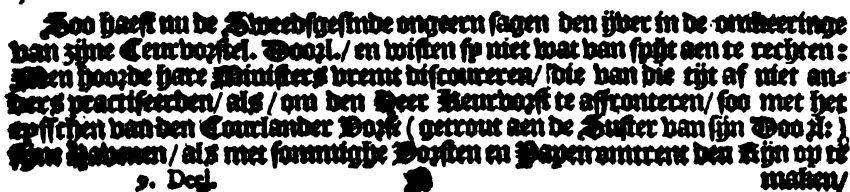 Soo haest nu de Sweedsgesinde ongeern sagen den ijver in de omkeeringe
van zijne Ceurvorstel. Doorl./ en wisten sy niet wat van spijt aen te rechten:
Men hoorde hare Ministers vremt discoureren/ die van die tijt af niet an-
ders practiseerden/ als / om den Heer Keurvorst te affronteren/ soo met het
epsschen van den Courlander Vorst ( getrout aen de Suster van sijn Doorl: )
Havenen/ als met sommighe Vorsten en Papen omtrent den Rijn op te
9. Deel. maken/